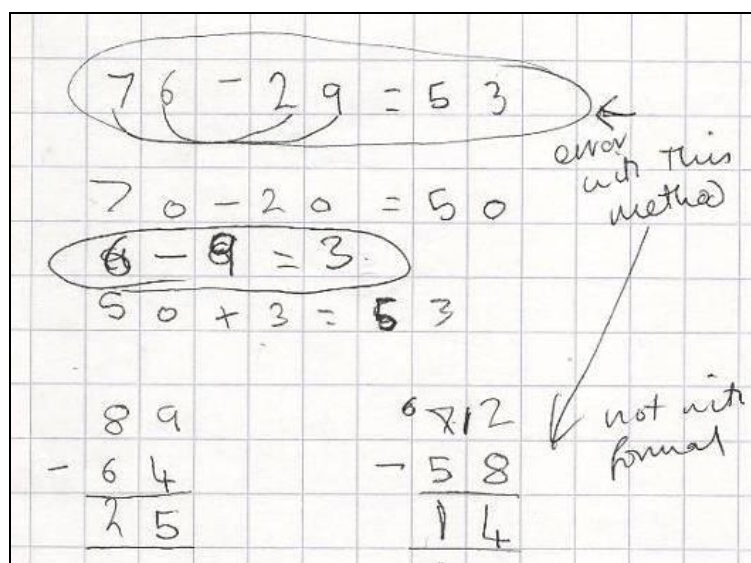 76 - 29 = 53
error
with this
method
70 - 20 = 50
6 - 9 = 3
50 + 3 = 53
89
- 64
25
6 7 12
- 58
14
not with
formal